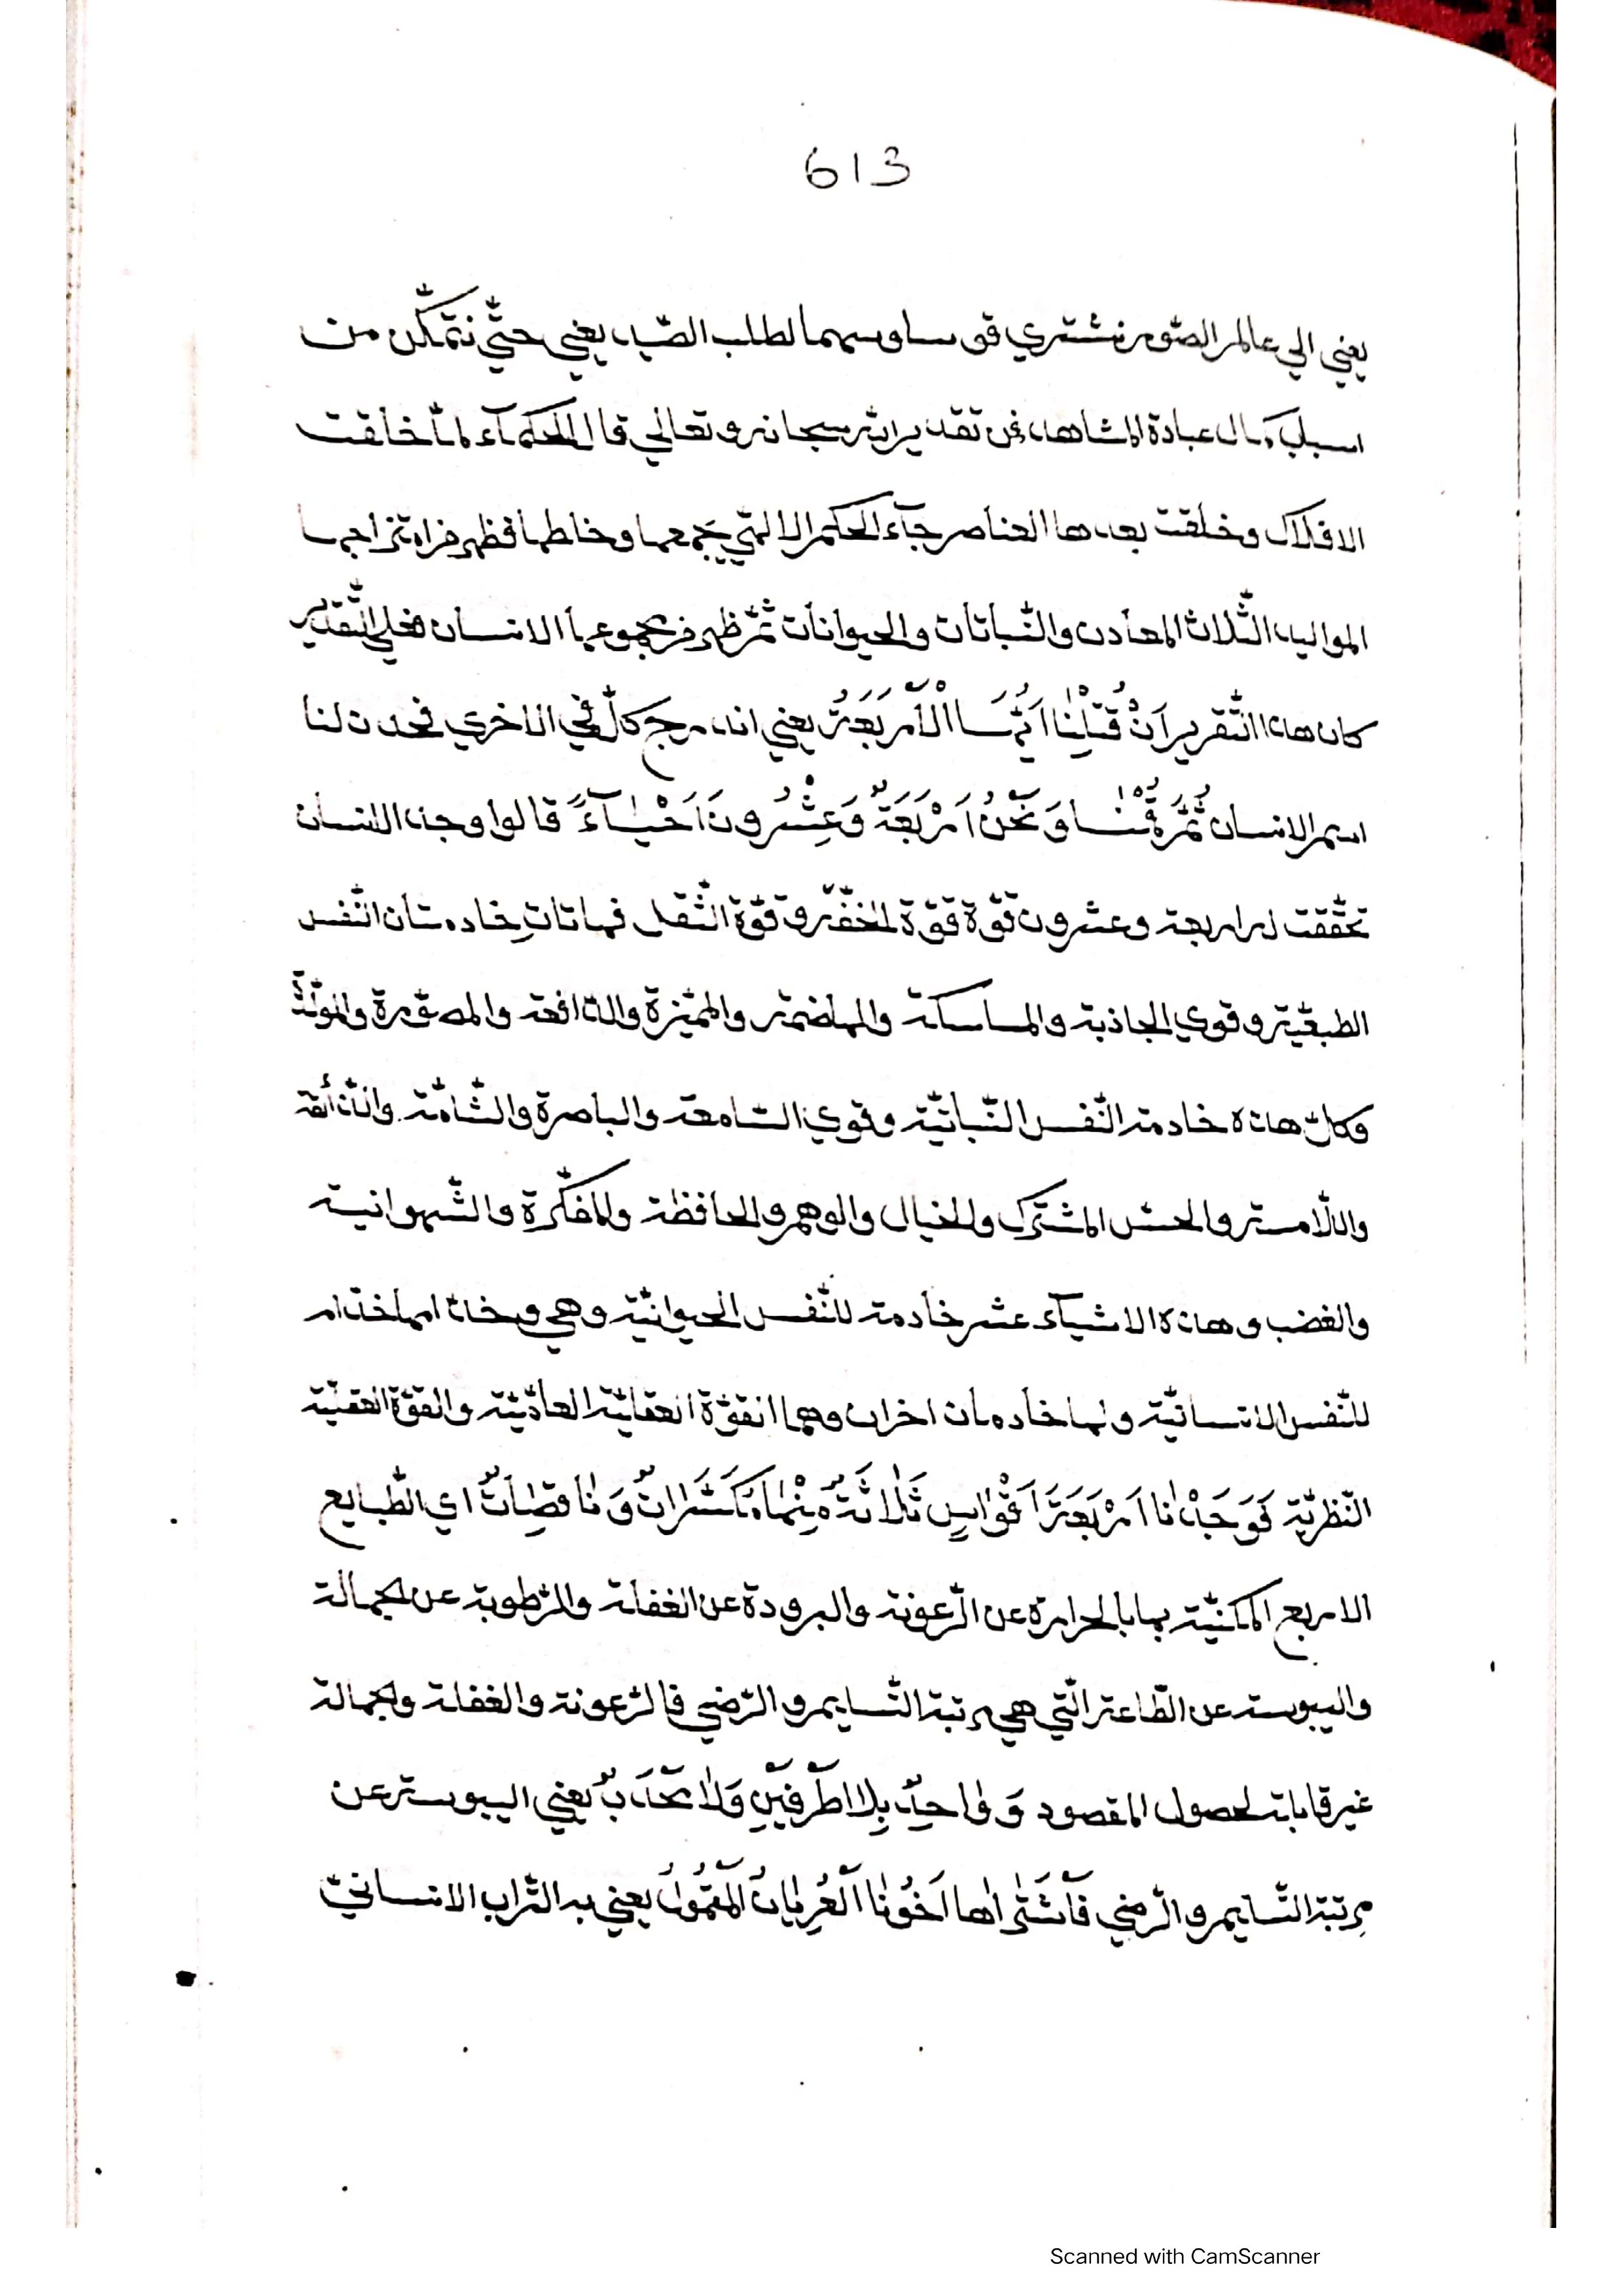 613
يعني الي عالم الصّور نشتري قوسا وسهما لطلب الصّيد يعني حتّي نتمكّن من
كمال عبادة المشاهد عن تقدير الله سبحانه وتعالي قال الحكمآء لمّا خلقت
الافلاك وخلقت بعدها العناصر جآء الحكم الالهي بجمعها وخلطها فظهر من امتزاجها
المواليد الثّلاث المعادن والنّباتات والحيوانات ثمّ ظهر من مجموعها الانسان فعلي التّقدير
كان هذا التّقرير اَنْ قُتِلْنٰا اَيَّتُهَا الْاَرْبَعَةُ يعني اندرج كلّ في الاخري فحدث لنا
اسم الانسان ثُمَّ قُمْنٰا وَنَحْنُ اَرْبَعَةٌ وَعِشْرُونَ اَحْيٰآءً قالوا وجد الانسان
تحقّقت له اربعة وعشرون قوّة قوّة الخفّة وقوّة الثّقل فهاتانِ خادمتان النّفس
الطبعيّة وقوي الجاذبة والماسكة والهاضمة والمميّزة والدّافعة والمصوّرة والمولّدة
وكلّ هذه خادمة النّفس النّباتيّة وقوي السّامعة والباصرة والشّامّة والذّائقة
واللّامسة والحسّ المشترك والخيال والوهم والحافظة والمفكّرة والشّهوانية
والغضب وهذه الاشيآء عشر خادمة للنّفس الحيوانيّة وهي وخدّامها خدّام
للنّفس الانسانيّة ولها خادمان اخران وهما القوّة العقليّة العاديّة والقوّة العقليّة
النّظريّة فَوَجَدْنٰا اَرْبَعَةَ اَقْوٰاسٍ ثَلٰاثَةٌ مِنْهٰا مُكَسَّرٰاتٌ وَنٰاقِصٰاتٌ اي الطّبايع
الاربع المكنيّة بها بالحرارة عن الرّعونة والبرودة عن الغفلة والرّطوبة عن الجهالة
واليبوسة عن الطّاعة الّتي هي مرتبة التّسليم والرّضي فالرّعونة والغفلة والجهالة
غير قابلة لحصول المقصود وَوٰاحِدٌ بِلٰا طَرَفَيْنِ وَلٰا يعني اليبوسة عن
مرتبة التّسليم والرّضي فَاشْتَرٰاهٰا اَخُونٰا الْعُرْيٰانُ الْمُتَمَوِّلُ يعني به التّراب الانسانيّ
Scanned with CamScanner